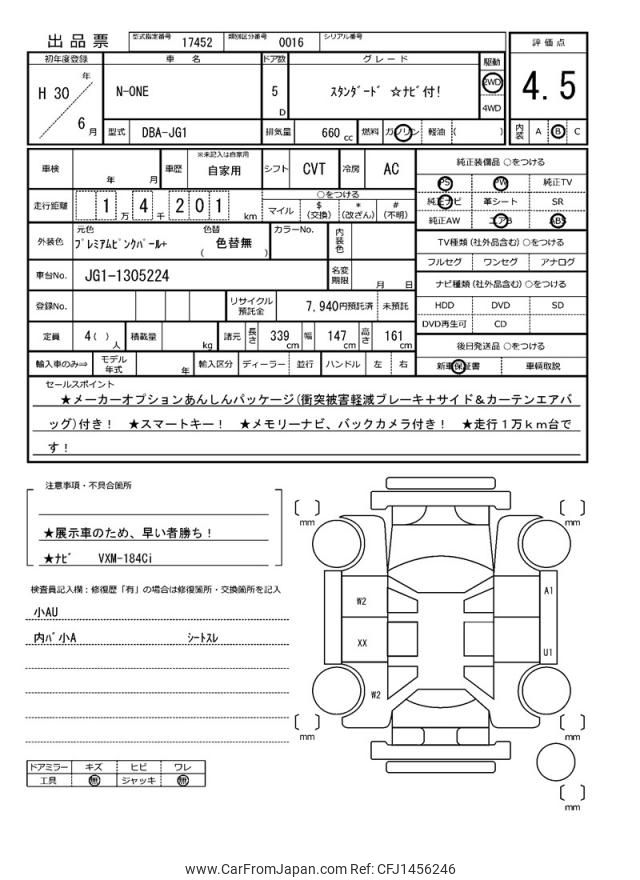 出品票 型式指定番号 17452 類別区分番号 0016 シリアル番号
初年度登録 車 名 ドア数 グレード 駆動 評価点
H 30 年 6 月 N-ONE 5 D ｽﾀﾝﾀﾞｰﾄﾞ ☆ﾅﾋﾞ付! 2WD 4WD 4.5
型式 DBA-JG1 排気量 660 cc 燃料 ガソリン 軽油 ( ) 内装 A B C
車検 年 月 車歴 ※未記入は自家用 自家用 シフト CVT 冷房 AC
純正装備品 ○をつける
PS PW 純正TV
純正ナビ 革シート SR
純正AW エアB ABS
走行距離 1 万 4 千 2 0 1 km ○をつける マイル $ (交換) * (改ざん) # (不明)
外装色 元色 ﾌﾟﾚﾐｱﾑﾋﾟﾝｸﾊﾟｰﾙ+ 色替 ( 色替無 ) カラーNo. 内装色
TV種類 (社外品含む) ○をつける
フルセグ ワンセグ アナログ
車台No. JG1-1305224 名変期限 月 日
ナビ種類 (社外品含む) ○をつける
HDD DVD SD
DVD再生可 CD
登録No. リサイクル預託金 7,940円預託済 未預託
定員 4( ) 人 積載量 kg 諸元 長さ 339 cm 幅 147 cm 高さ 161 cm
後日発送品 ○をつける
新車保証書 車輌取説
輸入車のみ⇒ モデル年式 年 輸入区分 ディーラー 並行 ハンドル 左 右
セールスポイント
★メーカーオプションあんしんパッケージ(衝突被害軽減ブレーキ＋サイド＆カーテンエアバ
ッグ)付き! ★スマートキー! ★メモリーナビ、バックカメラ付き! ★走行１万ｋｍ台で
す!
注意事項・不具合箇所
★展示車のため、早い者勝ち!
★ﾅﾋﾞ VXM-184Ci
検査員記入欄：修復歴「有」の場合は修復箇所・交換箇所を記入
小AU
内ﾊﾞ小A ｼｰﾄｽﾚ
mm mm
W2 A1
XX U1
W2
mm mm
mm
ドアミラー キズ ヒビ ワレ
工具 無 ジャッキ 無
www.CarFromJapan.com Ref: CFJ1456246